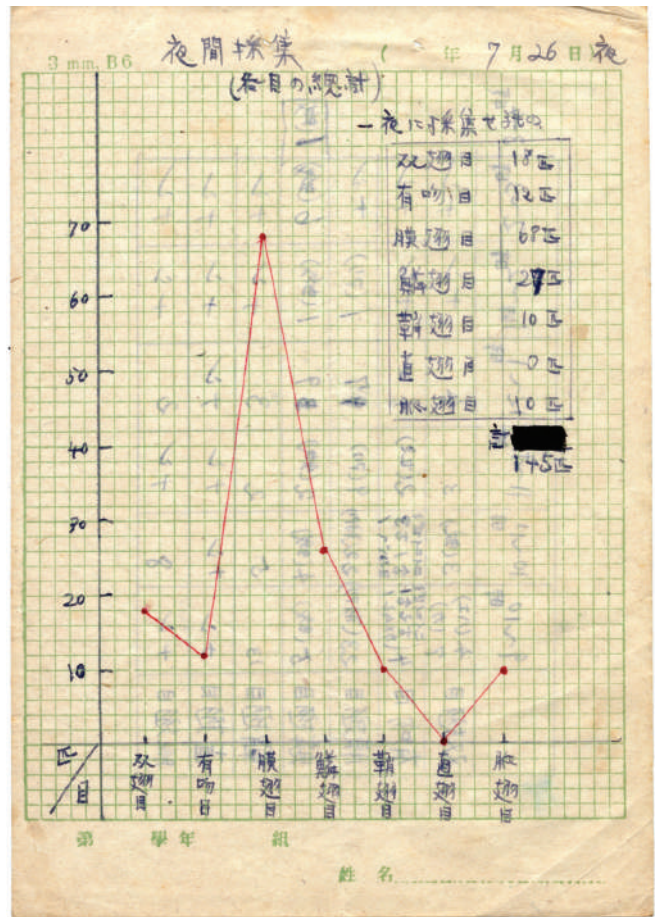 3 mm. B6
夜間採集 ( 年 7 月 26 日) 夜
(各目の總計)
一夜に採集せる
双翅目 18匹
有吻目 12匹
膜翅目 68匹
鱗翅目 27匹
鞘翅目 10匹
直翅目 0匹
脈翅目 10匹
計
145匹
70
60
50
40
30
20
10
匹
目
双翅目
有吻目
膜翅目
鱗翅目
鞘翅目
直翅目
脈翅目
第 學年 組
姓名